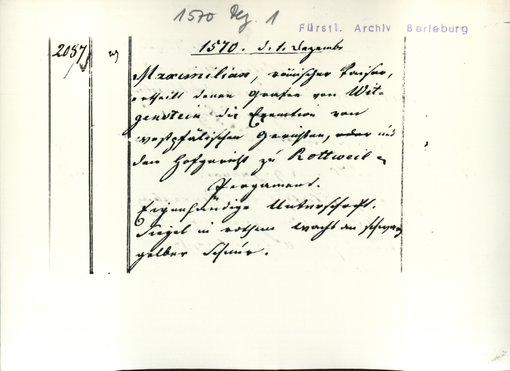 1570 Dez. 1
Fürstl. Archiv Berleburg
2087
1570. d. 1. Dezembr
Maximilian, römischer Kaiser,
ertheilt denen Grafen von Wit-
genstein die Exemtion von
westphälischen Gerichten, oder und
dem Hofgericht zu Rottweil
Pergament.
Eigenhändige Unterschrift.
Siegel in rothem Wachs an schwarz
gelber Schnur.